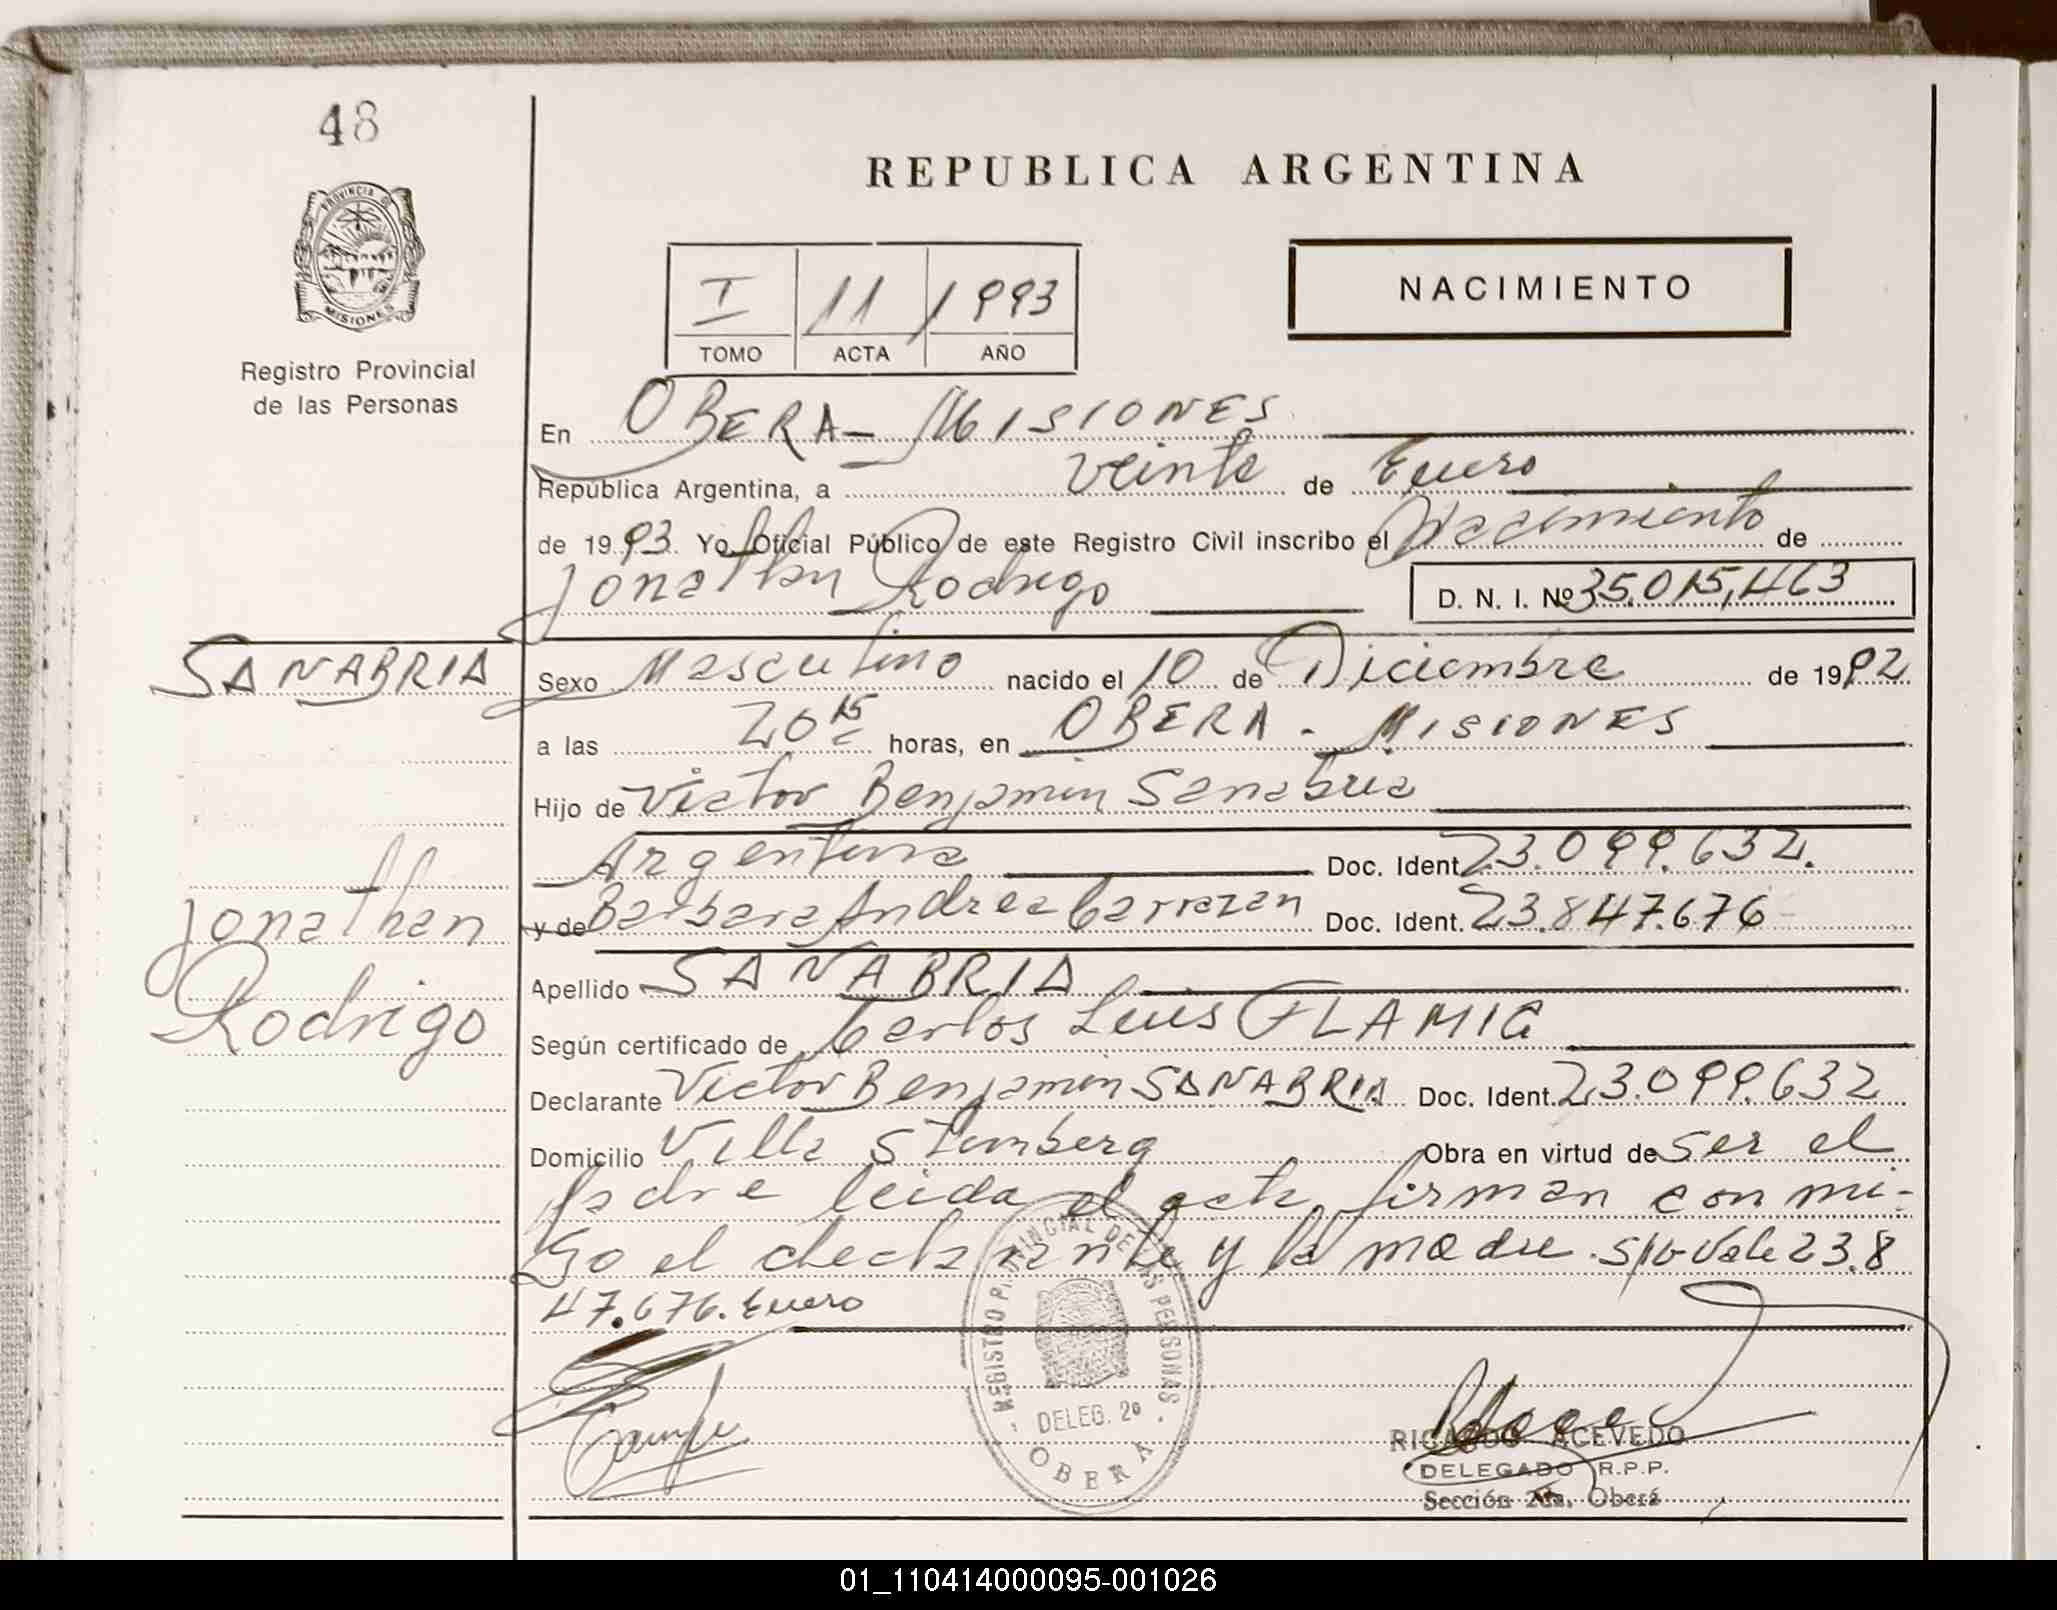 48
PROVINCIA D
MISIONES
Registro Provincial
de las Personas
REPUBLICA ARGENTINA
I 11 1993
TOMO ACTA AÑO
NACIMIENTO
En OBERA - MISIONES
República Argentina, a veinte de Enero
de 1993 Yo Oficial Público de este Registro Civil inscribo el Nacimiento de
Jonathan Rodrigo D. N. I. Nº 35.015,463
SANABRIA
Sexo Masculino nacido el 10 de Diciembre de 1992
a las 20 15 horas, en OBERA - MISIONES
Hijo de Victor Benjamin Sanabria
Argentina Doc. Ident. 23.099.632.
y de Barbara Andrea Carrazan Doc. Ident. 23.847.676
Jonathan
Rodrigo
Apellido SANABRIA
Según certificado de Carlos Luis FLAMIG
Declarante Victor Benjamin SANABRIA Doc. Ident. 23.099.632
Domicilio Villa Stemberg Obra en virtud de ser el
Padre leida el acta firman conmi-
go el declarante y la madre. S/b Vale 23.8
47.676. Enero
REGISTRO PROVINCIAL DE LAS PERSONAS
DELEG. 2º
OBERA
RICARDO ACEVEDO
DELEGADO R.P.P.
Sección 2da. Oberá
01_110414000095-001026